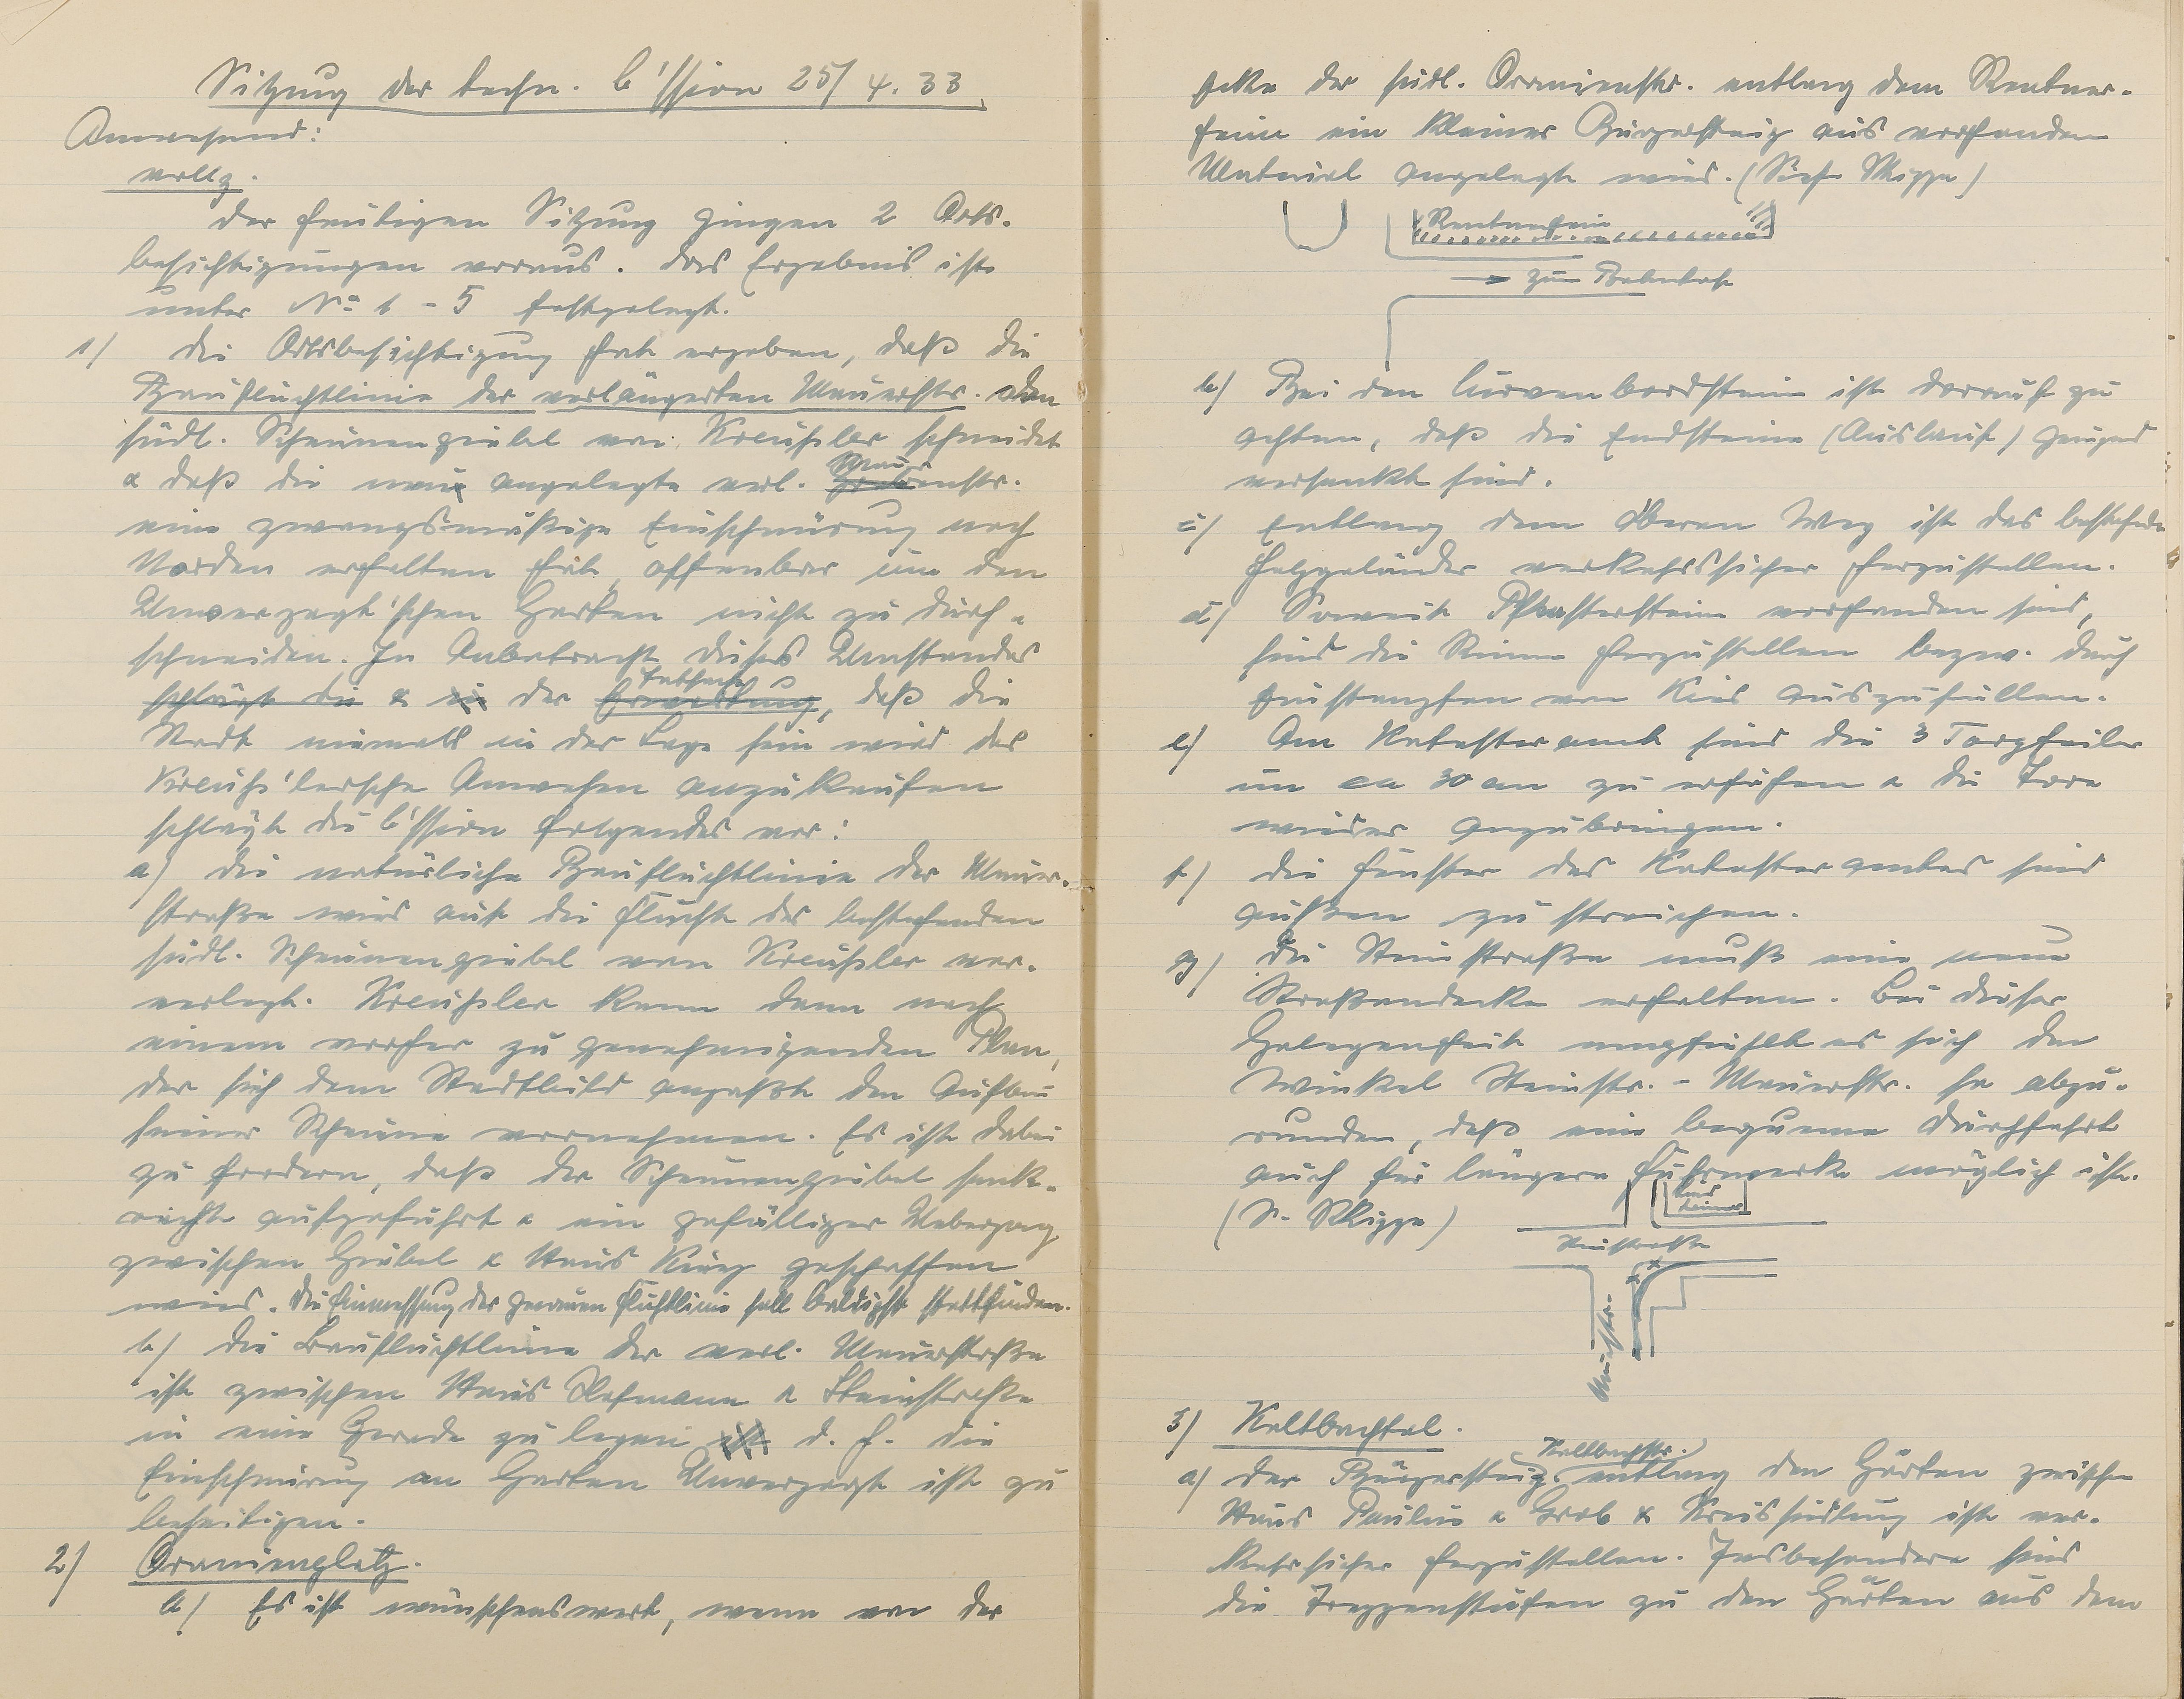 Sitzung der techn. C'ssion 25/4.33.
Anwesend:
vollz.
Der heutigen Sitzung gingen 2 Orts-
besichtigungen voraus. Das Ergebnis ist
unter No 1 - 5 festgelegt.
1) Die Ortsbesichtigung hat ergeben, daß die
Baufluchtlinie der verlängerten Mauerstr. den
südl. Scheunengiebel von Kreußler schneidet
& daß die neu angelegte verl. Mauerstr.
eine zwangsmäßige Einschnürung nach
Norden erhalten hat, offenbar um den
Unverzagt'schen Garten nicht zu durch-
schneiden. In Anbetracht dieses Umstandes
schlägt die & in der Erwartung Tatsache, daß die
Stadt niemals in der Lage sein wird das
Kreußler'sche Anwesen anzukaufen
schlägt die C'ssion folgendes vor:
a) Die natürliche Baufluchtlinie der Mauer-
straße wird auf die Flucht des bestehenden
südl. Scheunengiebel von Kreußler ver-
verlegt. Kreußler kann dann nach
einem vorher zu genehmigenden Plan,
der sich dem Stadtbild anpaßt den Aufbau
seiner Scheune vornehmen. Es ist dabei
zu fordern, daß der Scheunengiebel senk-
recht aufgeführt & ein gefälliger Übergang
zwischen Giebel & Haus Kürz geschaffen
wird. Die Einmessung der genauen Fluchtlinie soll baldigst stattfinden.
b) Die Baufluchtlinie der verl. Mauerstraße
ist zwischen Haus Hofmann & Steinstraße
in eine Gerade zu legen ist d.h. die
Einschnürung am Garten Unverzagt ist zu
beseitigen.
2) Oranienplatz.
a) Es ist wünschenswert, wenn von der
Ecke der südl. Oranienstr. entlang dem Rentner-
heim ein kleiner Bürgersteig aus vorhandenem
Material angelegt wird. (Siehe Skizze)
Rentnerheim
→ zum Bahnhof
b) Bei den Curvenbordstein ist darauf zu
achten, daß die Endsteine (Auslauf) genügend
versenkt sind.
c) Entlang dem oberen Weg ist das bestehende
Holzgeländer verkehrssicher herzustellen.
d) Soweit Pflastersteine vorhanden sind,
sind die Rinne herzustellen bezw. durch
Einstampfen von Kies auszufüllen.
e) Am Katasteramt sind die 3 Torpfeiler
um ca 30 cm zu erhöhen & die Tore
wieder anzubringen.
f) Die Fenster des Katasteramtes sind
außen zu streichen.
g) Die Steinstraße muß eine neue
Straßendecke erhalten. Bei dieser
Gelegenheit empfiehlt es sich den
Winkel Steinstr. - Mauerstr. so abzu-
runden, daß eine bequeme Durchfahrt
auch für längere Fuhrwerke möglich ist.
(S. Skizze)
Steinstraße
Mauerstr.
3) Kaltbachtal.
a) Der Bürgersteig (Kaltbachstr.) entlang den Gärten zwischen
Haus Paulus & Grob & Kreissiedlung ist ver-
kehrssicher herzustellen. Insbesondere sind
die Treppenstufen zu den Gärten aus dem